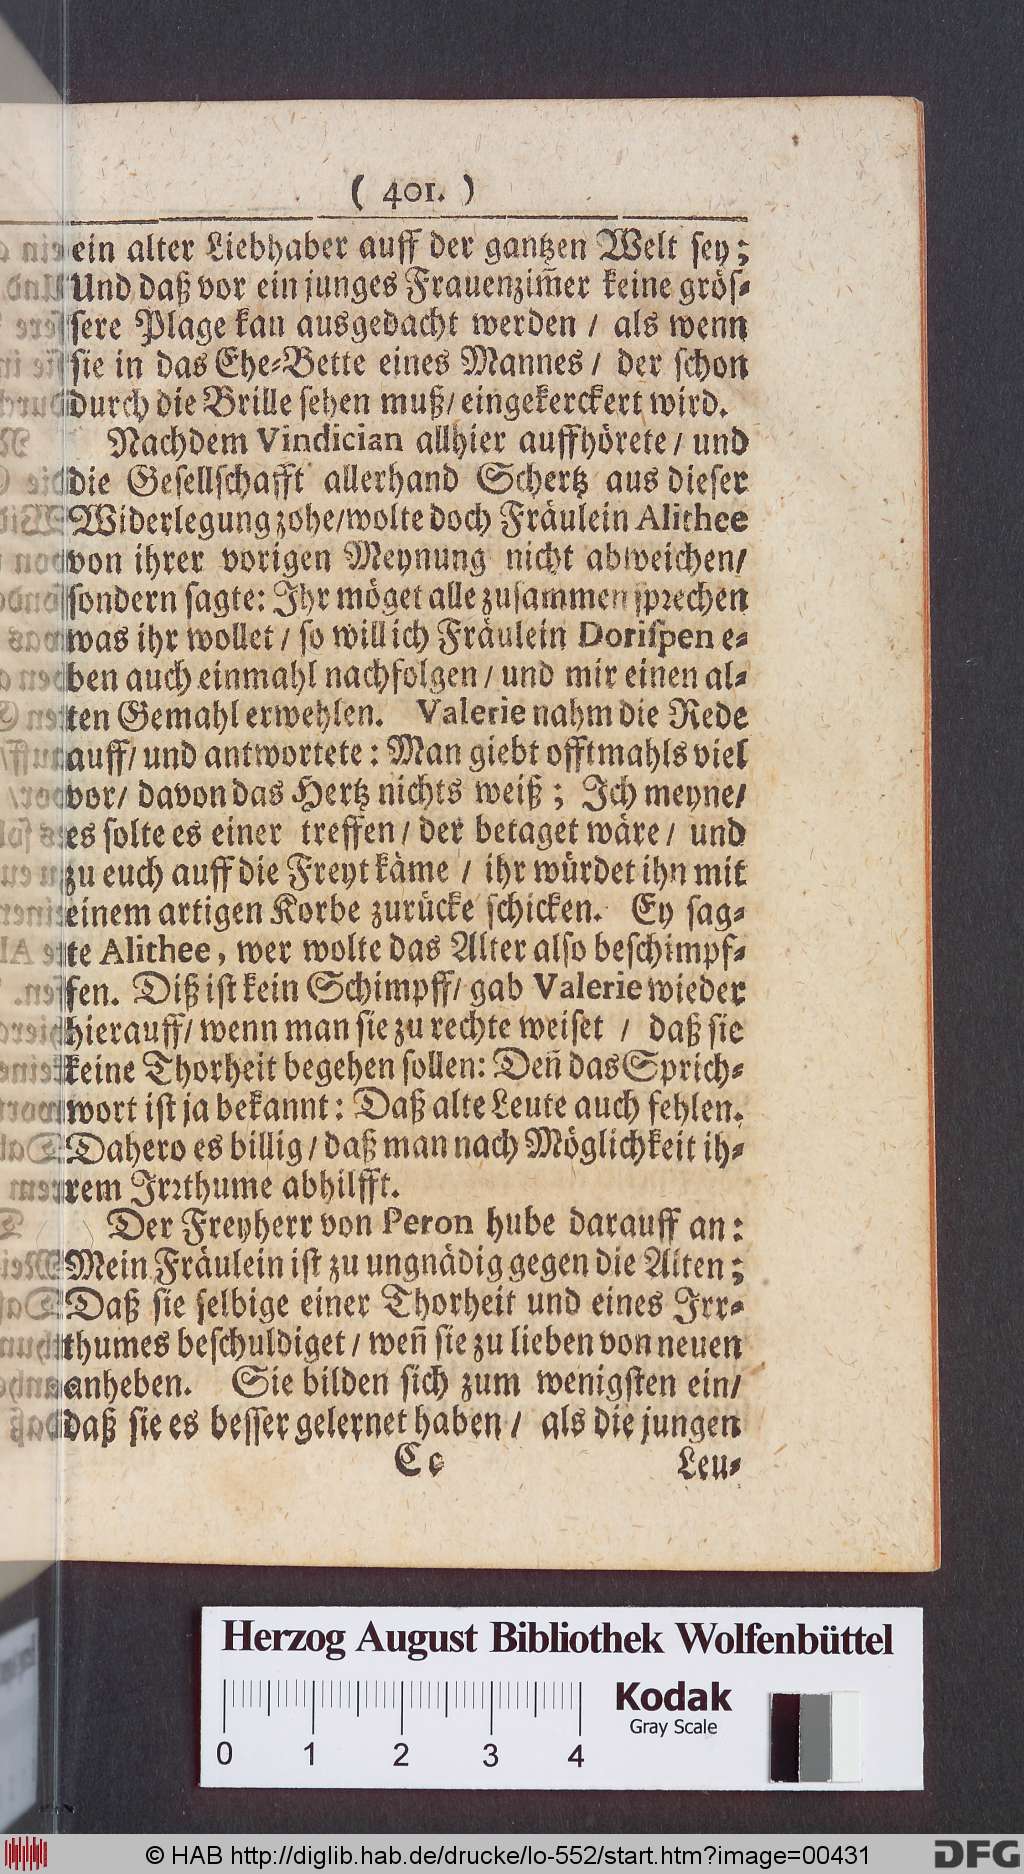 ( 401. )
ein alter Liebhaber auff der gantzen Welt sey;
Und daß vor ein junges Frauenzim̃er keine grös-
sere Plage kan ausgedacht werden / als wenn
sie in das Ehe-Bette eines Mannes / der schon
durch die Brille sehen muß/ eingekerckert wird.
Nachdem Vindician allhier auffhörete / und
die Gesellschafft allerhand Schertz aus dieser
Widerlegung zohe/wolte doch Fräulein Alithee
von ihrer vorigen Meynung nicht abweichen/
sondern sagte: Ihr möget alle zusammen sprechen
was ihr wollet / so will ich Fräulein Dorispen e-
ben auch einmahl nachfolgen / und mir einen al-
ten Gemahl erwehlen. Valerie nahm die Rede
auff/ und antwortete : Man giebt offtmahls viel
vor/ davon das Hertz nichts weiß ; Ich meyne/
es solte es einer treffen / der betaget wäre / und
zu euch auff die Freyt käme / ihr würdet ihn mit
einem artigen Korbe zurücke schicken. Ey sag-
te Alithee, wer wolte das Alter also beschimpf-
fen. Diß ist kein Schimpff/ gab Valerie wieder
hierauff/ wenn man sie zu rechte weiset / daß sie
keine Thorheit begehen sollen: Deñ das Sprich-
wort ist ja bekannt : Daß alte Leute auch fehlen.
Dahero es billig / daß man nach Möglichkeit ih-
rem Irrthume abhilfft.
Der Freyherr von Peron hube darauff an:
Mein Fräulein ist zu ungnädig gegen die Alten;
Daß sie selbige einer Thorheit und eines Irr-
thumes beschuldiget / weñ sie zu lieben von neuen
anheben. Sie bilden sich zum wenigsten ein/
daß sie es besser gelernet haben / als die jungen
Cc Leu-
Herzog August Bibliothek Wolfenbüttel
Kodak
Gray Scale
0 1 2 3 4
© HAB http://diglib.hab.de/drucke/lo-552/start.htm?image=00431
DFG